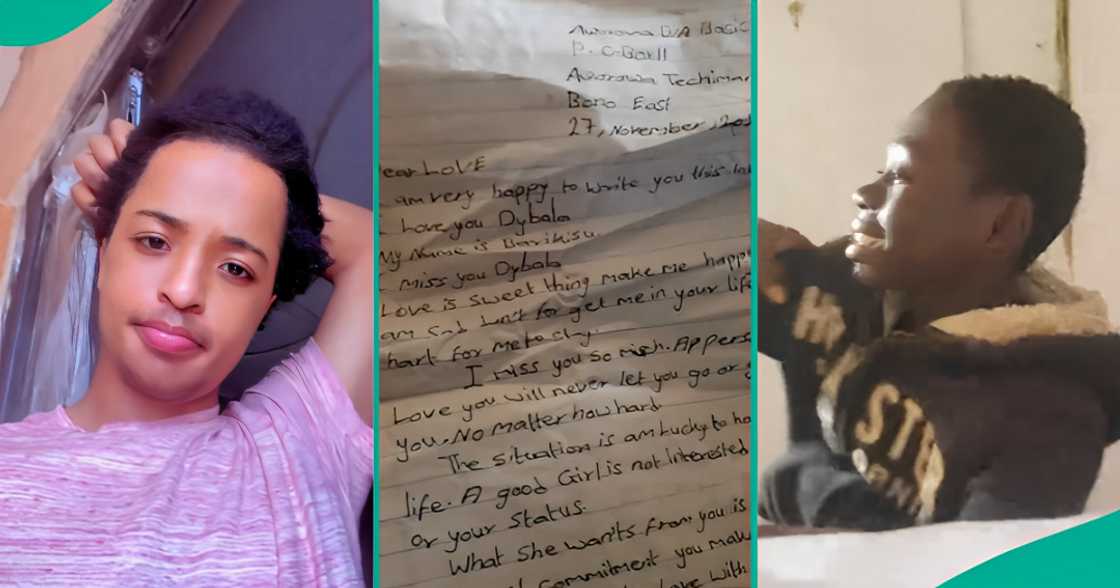 Aworowa D/A Basic
P. O-Box11
Aworowa Techiman
Bono East
27, November, 
ear LOVE
am very happy to write you this
I love you Dybala
My Name is Barikisu.
I miss you Dybala
Love is sweet thing make me happy
am sad don't for get me in your life
hart for me to
I miss you so mish. A ppers
Love you will never let you go or
you. No matter how hard
The situation is am Lucky to ha
life. A good Girl is not Interested
or your Status.
What she wants from you is
commitment you make
love with
ST